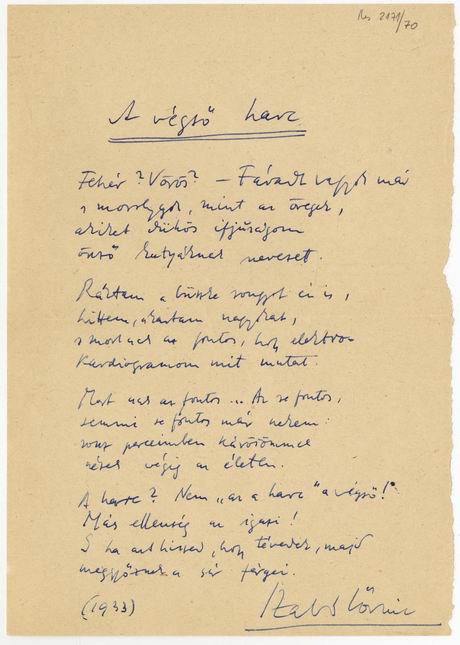 Res 2171/70
A végső harc
Fehér? Vörös? — Fáradt vagyok már
s mosolygok, mint az öregek,
akiket dühös ifjúságom
önző kutyáknak nevezett.
Ráztam a büszke rongyot én is,
hittem, akartam nagyokat,
s most csak az fontos, hogy elektro-
kardiogramom mit mutat.
Mert csak az fontos ... Az se fontos,
semmi se fontos már nekem:
rossz perceimben kárörömmel
nézek végig az életen.
A harc? Nem „az a harc" a végső!
Más ellenség az igazi!
S ha azt hiszed, hogy tévedek, majd
meggyőznek a sír férgei.
(1933)
Szabó Lőrinc